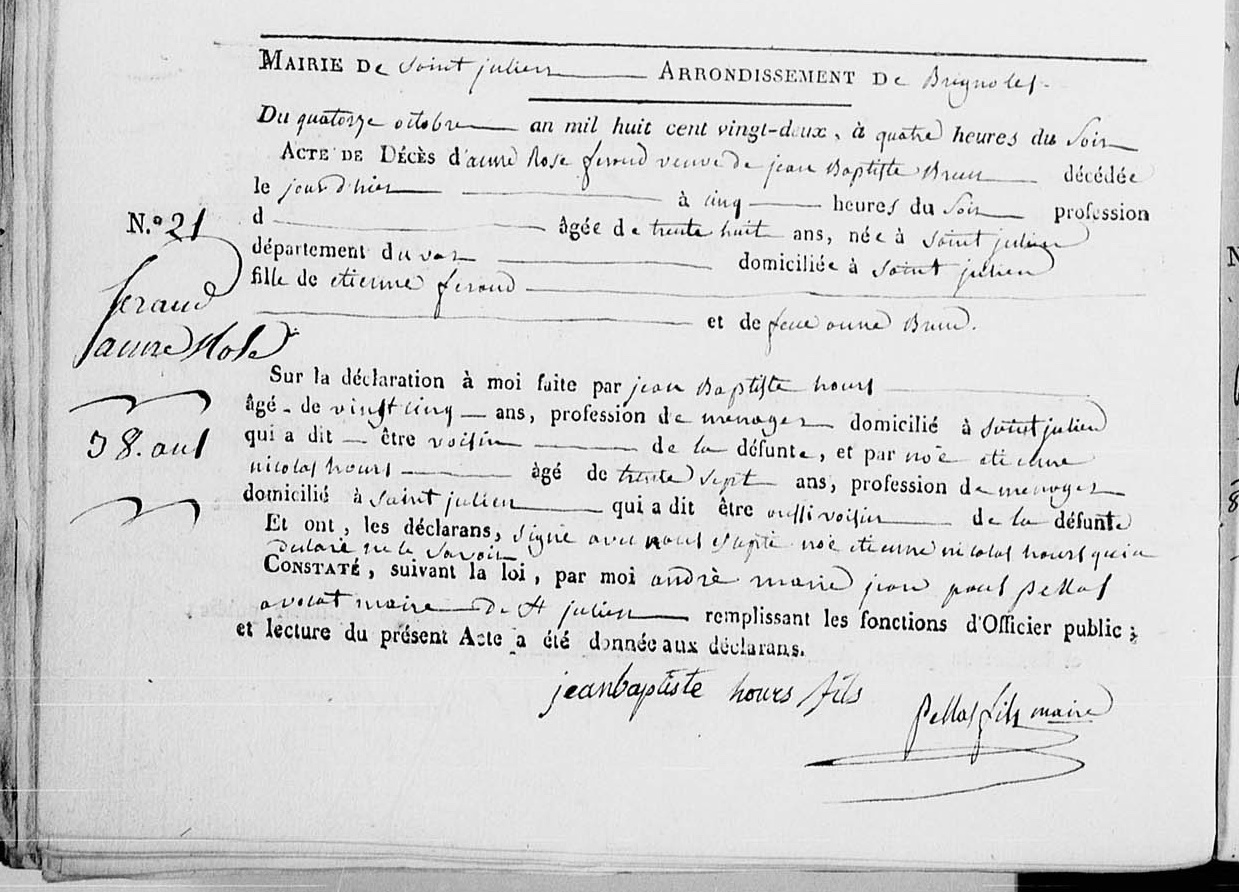 MAIRIE De Saint julien ARRONDISSEMENT De Brignoles.
Du quatorze octobre an mil huit cent vingt-deux, à quatre heures du Soir
ACTE DE DÉCÈS d'anne Rose feraud veuve de jean Baptiste Brun décédée
le jour d'hier à cinq heures du Soir profession
d âgée de trente huit ans, née à saint julien
N.° 21
département du var domiciliée à saint julien
fille de etienne feraud
feraud
et de feue anne Brun.
anne Rose
Sur la déclaration à moi faite par jean Baptiste hours
âgé de vingt cinq ans, profession de menager domicilié à saint julien
38. ans
qui a dit être voisin de la défunte, et par noé etienne
nicolas hours âgé de trente sept ans, profession de menager
domicilié à saint julien qui a dit être aussi voisin de la défunte
Et ont, les déclarans, signé avec nous excepté noé etienne nicolas hours qui a
déclaré ne le savoir
CONSTATÉ, suivant la loi, par moi andré marie jean paul pellas
avocat maire de St julien remplissant les fonctions d'Officier public;
et lecture du présent Acte a été donnée aux déclarans.
jeanbaptiste hours fils
pellas fils maire